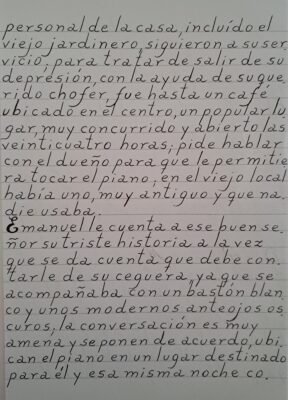 personal de la casa, incluído el
viejo jardinero, siguieron a su ser
vicio, para tratar de salir de su
depresión, con la ayuda de su que
rido chofer, fue hasta un café
ubicado en el centro, un popular lu
gar, muy concurrido y abierto las
veinticuatro horas; pide hablar
con el dueño para que le permitie
ra tocar el piano, en el viejo local
había uno, muy antiguo y que na.
die usaba.
Emanuel le cuenta a ese buen se.
ñor su triste historia a la vez
que se da cuenta que debe con.
tarle de su ceguera, ya que se
acompañaba con un bastón blan
co y unos modernos anteojos os
curos, la conversación es muy
amena y se ponen de acuerdo, ubi
can el piano en un lugar destinado
para él y esa misma noche co.